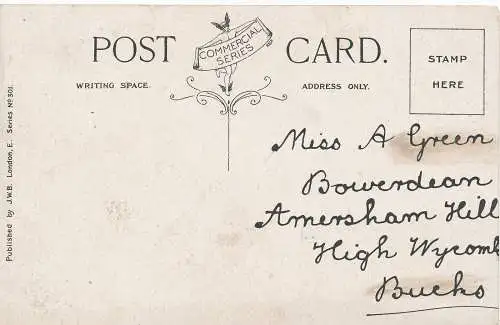 POST CARD.
COMMERCIAL
SERIES
WRITING SPACE.
ADDRESS ONLY.
STAMP
HERE
Miss A Green
Bowerdean
Amersham Hill
High Wycomb
Bucks
Published by J.W.B. London, E. Series No 301.